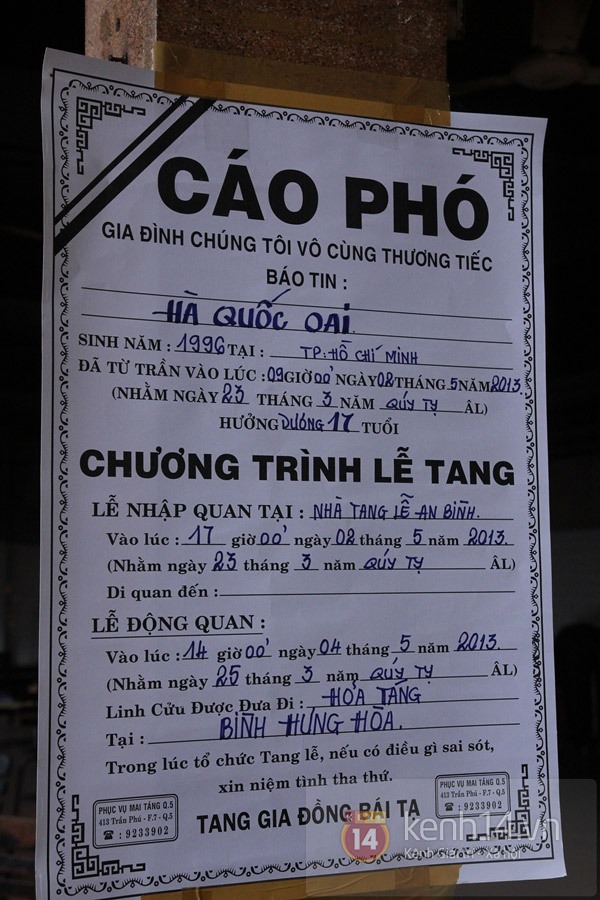 CÁO PHÓ
GIA ĐÌNH CHÚNG TÔI VÔ CÙNG THƯƠNG TIẾC
BÁO TIN :
HÀ QUỐC OAI.
SINH NĂM : 1996 TẠI : TP: HỒ CHÍ MINH
ĐÃ TỪ TRẦN VÀO LÚC : 09 GIỜ 00' NGÀY 02 THÁNG 5 NĂM 2013.
(NHẰM NGÀY 23 THÁNG 3 NĂM QUÝ TỴ ÂL)
HƯỞNG DƯƠNG 17 TUỔI
CHƯƠNG TRÌNH LỄ TANG
LỄ NHẬP QUAN TẠI : NHÀ TANG LỄ AN BÌNH.
Vào lúc : 17 giờ 00' ngày 02 tháng 5 năm 2013.
(Nhằm ngày 23 tháng 3 năm QUÝ TỴ ÂL)
Di quan đến :
LỄ ĐỘNG QUAN :
Vào lúc : 14 giờ 00' ngày 04 tháng 5 năm 2013.
(Nhằm ngày 25 tháng 3 năm QUÝ TỴ ÂL)
Linh Cửu Được Đưa Đi : HỎA TÁNG
Tại : BÌNH HƯNG HÒA.
Trong lúc tổ chức Tang lễ, nếu có điều gì sai sót,
xin niệm tình tha thứ.
TANG GIA ĐỒNG BÁI TẠ
PHỤC VỤ MAI TÁNG Q.5
413 Trần Phú - F.7 - Q.5
☎ : 9233902
PHỤC VỤ MAI TÁNG Q.5
413 Trần Phú - F.7 - Q.5
☎ : 9233902
14 kenh14.vn